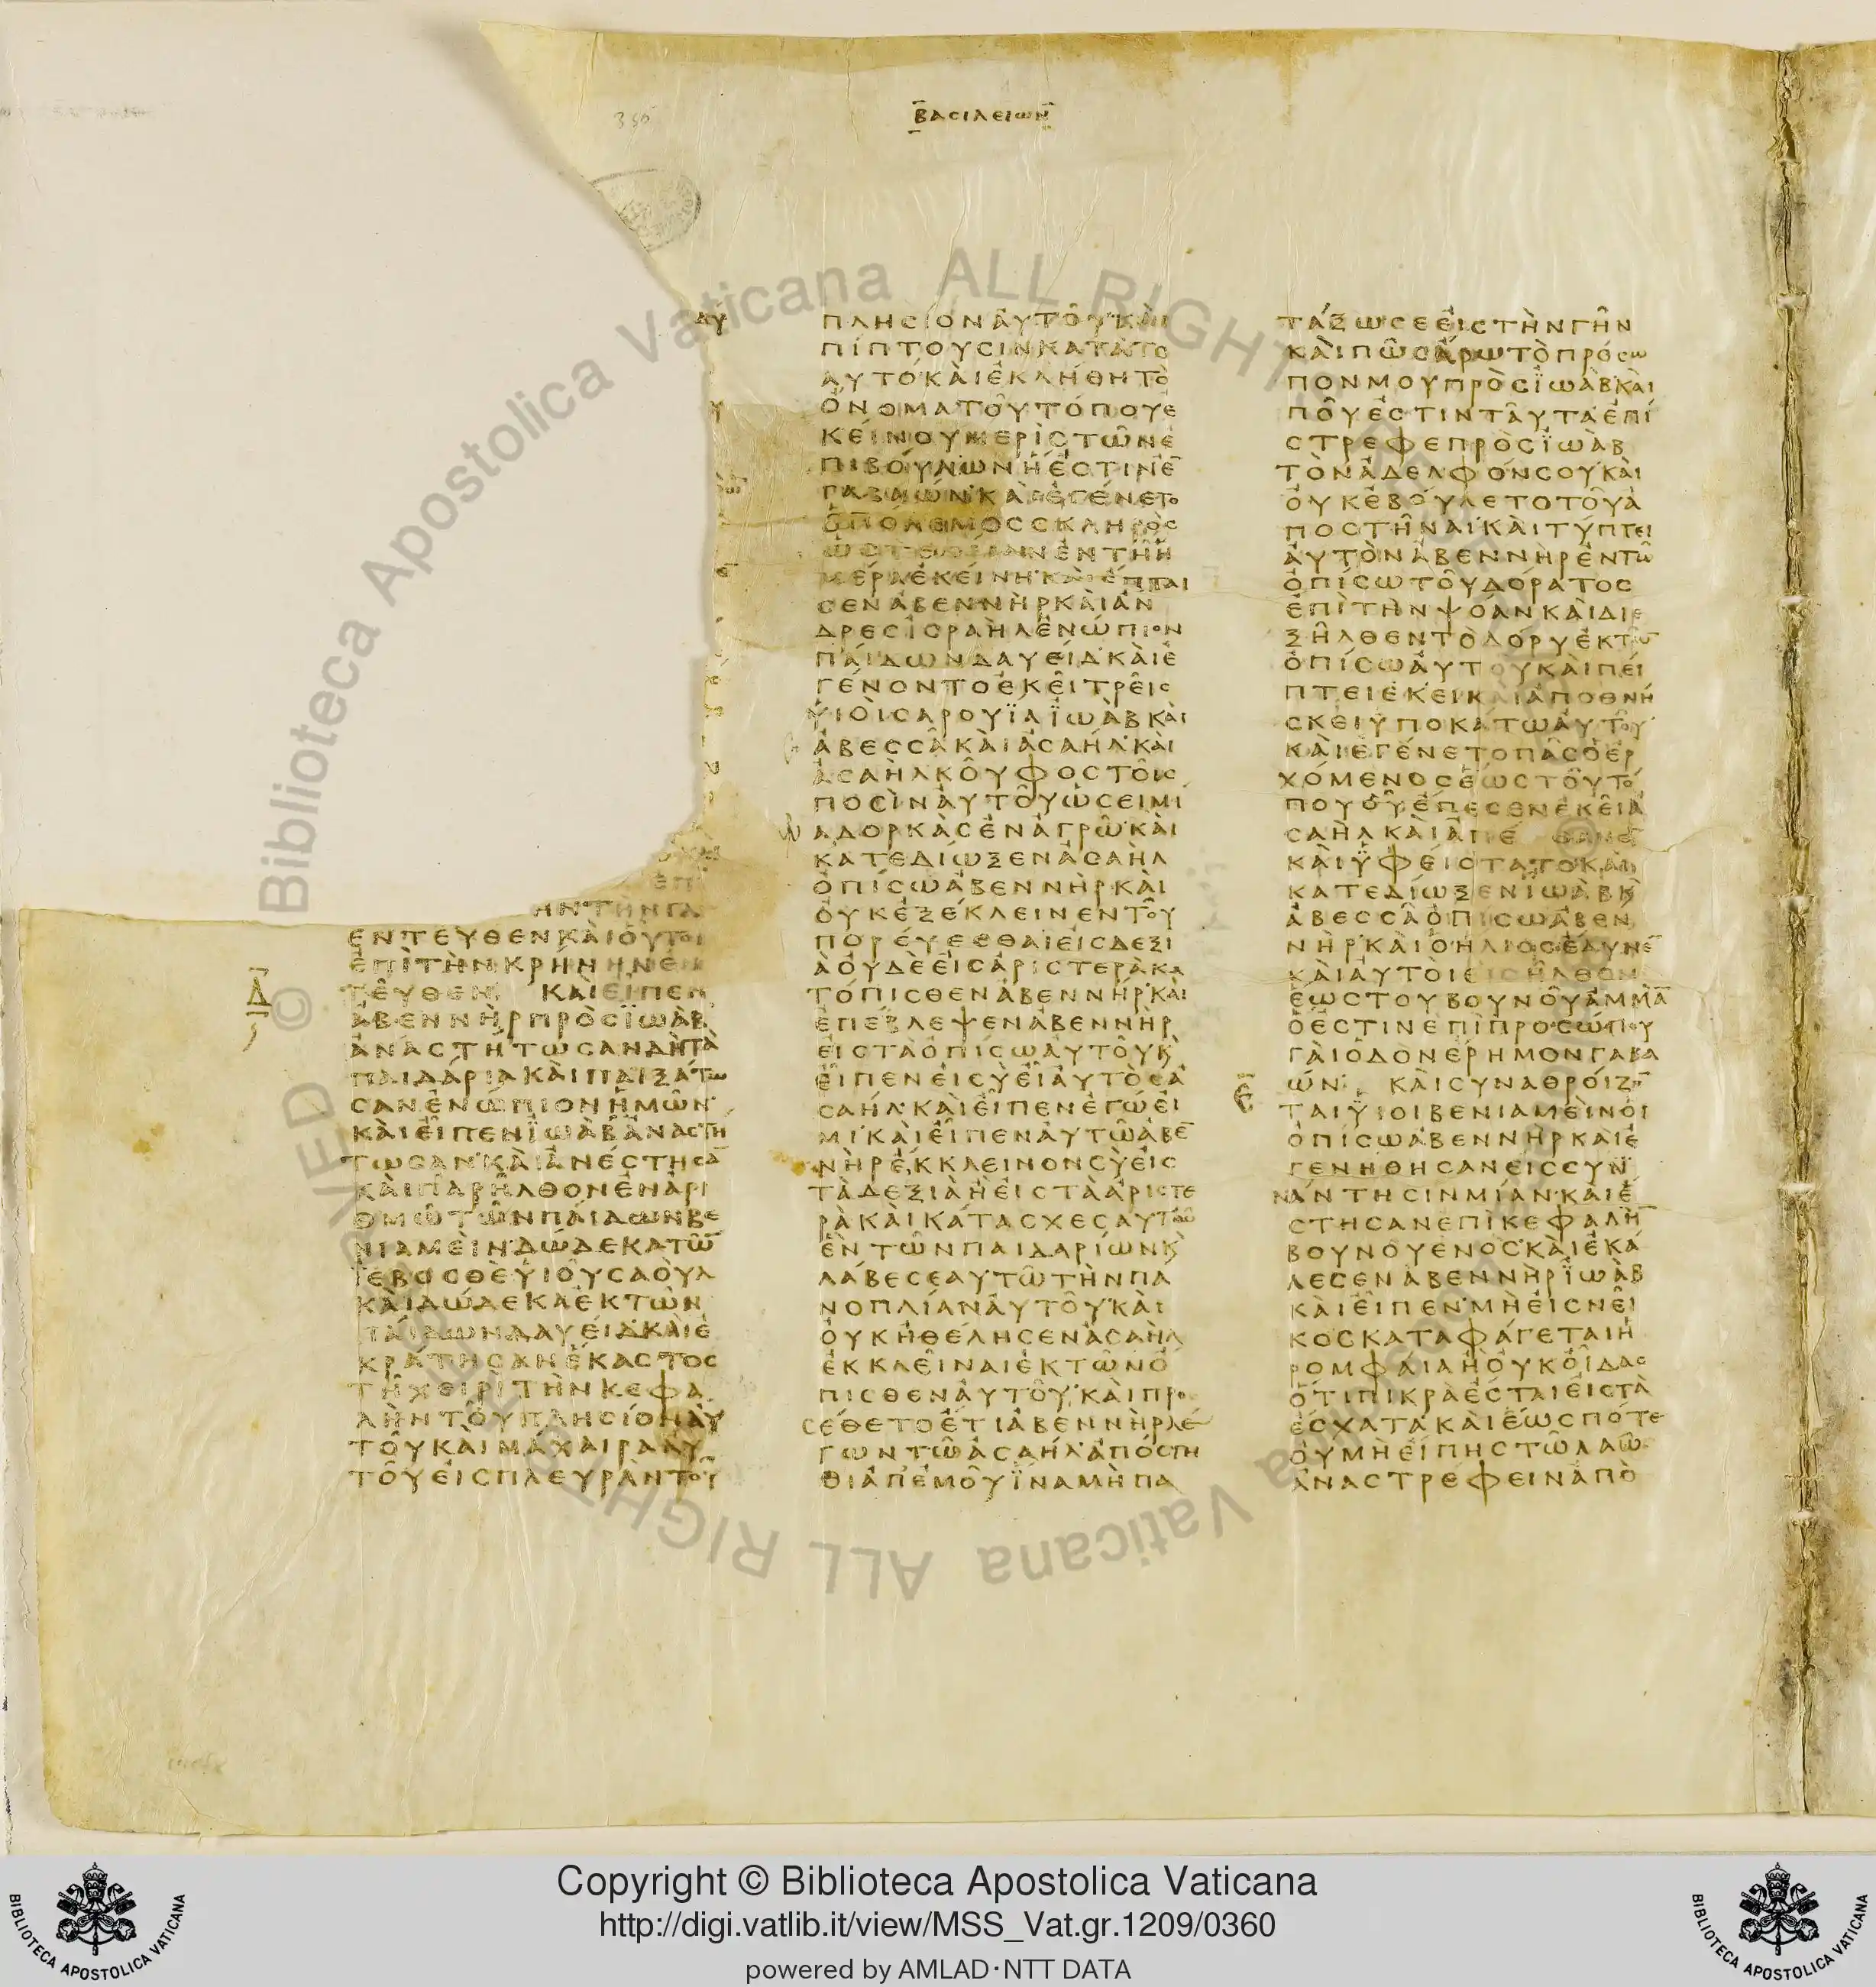 ΒΑΣΙΛΕΙΩΝ
ΑΥ
ΗΝΤΗΝΓΑ
ΕΝΤΕΥΘΕΝΚΑΙΟΥΤΟΙ
ΕΠΙΤΗΝΚΡΗΝΗΝΕΝ
ΤΕΥΘΕΝ ΚΑΙΕΙΠΕΝ
Δ
ΑΒΕΝΝΗΡΠΡΟΣΪΩΑΒ
ΑΝΑΣΤΗΤΩΣΑΝΔΗΤΑ
ΠΑΙΔΑΡΙΑΚΑΙΠΑΙΞΑΤΩ
ΣΑΝΕΝΩΠΙΟΝΗΜΩΝ
ΚΑΙΕΙΠΕΝΪΩΑΒΑΝΑΣΤΗ
ΤΩΣΑΝΚΑΙΑΝΕΣΤΗΣΑ̅
ΚΑΙΠΑΡΗΛΘΟΝΕΝΑΡΙ
ΘΜΩΤΩΝΠΑΙΔΩΝΒΕ
ΝΙΑΜΕΙΝΔΩΔΕΚΑΤΩ̅
ΪΕΒΟΣΘΕΥΙΟΥΣΑΟΥΛ
ΚΑΙΔΩΔΕΚΑΕΚΤΩΝ
ΠΑΙΔΩΝΔΑΥΕΙΔΚΑΙΕ
ΚΡΑΤΗΣΑΝΕΚΑΣΤΟΣ
ΤΗΧΕΙΡΙΤΗΝΚΕΦΑ
ΛΗΝΤΟΥΠΛΗΣΙΟΝΑΥ
ΤΟΥΚΑΙΜΑΧΑΙΡΑΑΥ
ΤΟΥΕΙΣΠΛΕΥΡΑΝΤΟΥ
ΠΛΗΣΙΟΝΑΥΤΟΥΚΑΙ
ΠΙΠΤΟΥΣΙΝΚΑΤΑΤΟ
ΑΥΤΟΚΑΙΕΚΛΗΘΗΤΟ
ΟΝΟΜΑΤΟΥΤΟΠΟΥΕ
ΚΕΙΝΟΥΜΕΡΙΣΤΩΝΕ
ΠΙΒΟΥΛΩΝΗΕΣΤΙΝΕ̅
ΓΑΒΑΩΝΚΑΙΕΓΕΝΕΤΟ
ΟΠΟΛΕΜΟΣΣΚΛΗΡΟΣ
ΩΣΤΕΛΕΙΑΝΕΝΤΗΗ
ΜΕΡΑΕΚΕΙΝΗΚΑΙΕΠΤΑΙ
ΣΕΝΑΒΕΝΝΗΡΚΑΙΑΝ
ΔΡΕΣΙΣΡΑΗΛΕΝΩΠΙΟΝ
ΠΑΙΔΩΝΔΑΥΕΙΔΚΑΙΕ
ΓΕΝΟΝΤΟΕΚΕΙΤΡΕΙΣ
ΥΙΟΙΣΑΡΟΥΪΑΪΩΑΒΚΑΙ
ΑΒΕΣΣΑΚΑΙΑΣΑΗΛΚΑΙ
ΑΣΑΗΛΚΟΥΦΟΣΤΟΙΣ
ΠΟΣΙΝΑΥΤΟΥΩΣΕΙΜΙ
ΑΔΟΡΚΑΣΕΝΑΓΡΩΚΑΙ
ΚΑΤΕΔΙΩΞΕΝΑΣΑΗΛ
ΟΠΙΣΩΑΒΕΝΝΗΡΚΑΙ
ΟΥΚΕΞΕΚΛΕΙΝΕΝΤΟΥ
ΠΟΡΕΥΕΣΘΑΙΕΙΣΔΕΞΙ
ΑΟΥΔΕΕΙΣΑΡΙΣΤΕΡΑΚΑ
ΤΟΠΙΣΘΕΝΑΒΕΝΝΗΡΚΑΙ
ΕΠΕΒΛΕΨΕΝΑΒΕΝΝΗΡ
ΕΙΣΤΑΟΠΙΣΩΑΥΤΟΥΚ
ΕΙΠΕΝΕΙΣΥΕΙΑΥΤΟΣΑ
ΣΑΗΛΚΑΙΕΙΠΕΝΕΓΩΕΙ
ΜΙΚΑΙΕΙΠΕΝΑΥΤΩΑΒΕ̅
ΝΗΡΕΚΚΛΕΙΝΟΝΣΥΕΙΣ
ΤΑΔΕΞΙΑΗΕΙΣΤΑΑΡΙΣΤΕ
ΡΑΚΑΙΚΑΤΑΣΧΕΣΑΥΤΩ
ΕΝΤΩΝΠΑΙΔΑΡΙΩΝΚ
ΛΑΒΕΣΕΑΥΤΩΤΗΝΠΑ
ΝΟΠΛΙΑΝΑΥΤΟΥΚΑΙ
ΟΥΚΗΘΕΛΗΣΕΝΑΣΑΗΛ
ΕΚΚΛΕΙΝΑΙΕΚΤΩΝΟ
ΠΙΣΘΕΝΑΥΤΟΥΚΑΙΠΡΟ
ΣΕΘΕΤΟΕΤΙΑΒΕΝΝΗΡΛΕ
ΓΩΝΤΩΑΣΑΗΛΑΠΟΣΤΗ
ΘΙΑΠΕΜΟΥΪΝΑΜΗΠΑ
ΤΑΞΩΣΕΕΙΣΤΗΝΓΗΝ
ΚΑΙΠΩΣΑΡΩΤΟΠΡΟΣΩ
ΠΟΝΜΟΥΠΡΟΣΪΩΑΒΚΑΙ
ΠΟΥΕΣΤΙΝΤΑΥΤΑΕΠΙ
ΣΤΡΕΦΕΠΡΟΣΪΩΑΒ
ΤΟΝΑΔΕΛΦΟΝΣΟΥΚΑΙ
ΟΥΚΕΒΟΥΛΕΤΟΤΟΥΑ
ΠΟΣΤΗΝΑΙΚΑΙΤΥΠΤΕΙ
ΑΥΤΟΝΑΒΕΝΝΗΡΕΝΤΩ
ΟΠΙΣΩΤΟΥΔΟΡΑΤΟΣ
ΕΠΙΤΗΝΨΟΑΝΚΑΙΔΙΕ
ΞΗΛΘΕΝΤΟΔΟΡΥΕΚΤΩ̅
ΟΠΙΣΩΑΥΤΟΥΚΑΙΠΕΙ
ΠΤΕΙΕΚΕΙΚΑΙΑΠΟΘΝΗ
ΣΚΕΙΥΠΟΚΑΤΩΑΥΤΟΥ
ΚΑΙΕΓΕΝΕΤΟΠΑΣΟΕΡ
ΧΟΜΕΝΟΣΕΩΣΤΟΥΤΟ
ΠΟΥΟΥΕΠΕΣΕΝΕΚΕΙΑ
ΣΑΗΛΚΑΙΑΠΕ ΘΑΝΕ̅
ΚΑΙΫΦΕΙΣΤΑΤΟΚΑΙ
ΚΑΤΕΔΙΩΞΕΝΪΩΑΒΚ
ΑΒΕΣΣΑΟΠΙΣΩΑΒΕΝ
ΝΗΡΚΑΙΟΗΛΙΟΣΕΔΥΝΕ̅
ΚΑΙΑΥΤΟΙΕΙΣΗΛΘΟΝ
ΕΩΣΤΟΥΒΟΥΝΟΥΑΜΜΑ̅
ΟΕΣΤΙΝΕΠΙΠΡΟΣΩΠΟΥ
ΓΑΙΟΔΟΝΕΡΗΜΟΝΓΑΒΑ
ΩΝ ΚΑΙΣΥΝΑΘΡΟΙΖΟ̅
Ε
ΤΑΙΫΙΟΙΒΕΝΙΑΜΕΙΝΟΙ
ΟΠΙΣΩΑΒΕΝΝΗΡΚΑΙΕ
ΓΕΝΗΘΗΣΑΝΕΙΣΣΥΝ
ΑΝΤΗΣΙΝΜΙΑΝΚΑΙΕ
ΣΤΗΣΑΝΕΠΙΚΕΦΑΛΗ̅
ΒΟΥΝΟΥΕΝΟΣΚΑΙΕΚΑ
ΛΕΣΕΝΑΒΕΝΝΗΡΪΩΑΒ
ΚΑΙΕΙΠΕΝΜΗΕΙΣΝΕΙ
ΚΟΣΚΑΤΑΦΑΓΕΤΑΙΗ
ΡΟΜΦΑΙΑΗΟΥΚΟΙΔΑΣ
ΟΤΙΠΙΚΡΑΕΣΤΑΙΕΙΣΤΑ
ΕΣΧΑΤΑΚΑΙΕΩΣΠΟΤΕ
ΟΥΜΗΕΙΠΗΣΤΩΛΑΩ
ΑΝΑΣΤΡΕΦΕΙΝΑΠΟ
© Biblioteca Apostolica Vaticana ALL RIGHTS RESERVED
Copyright © Biblioteca Apostolica Vaticana
http://digi.vatlib.it/view/MSS_Vat.gr.1209/0360
powered by AMLAD·NTT DATA
BIBLIOTECA APOSTOLICA VATICANA
BIBLIOTECA APOSTOLICA VATICANA